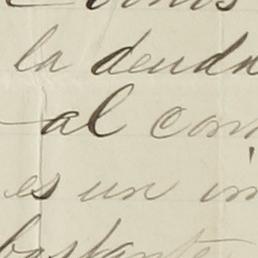 la deuda
al com
es un im
bastante